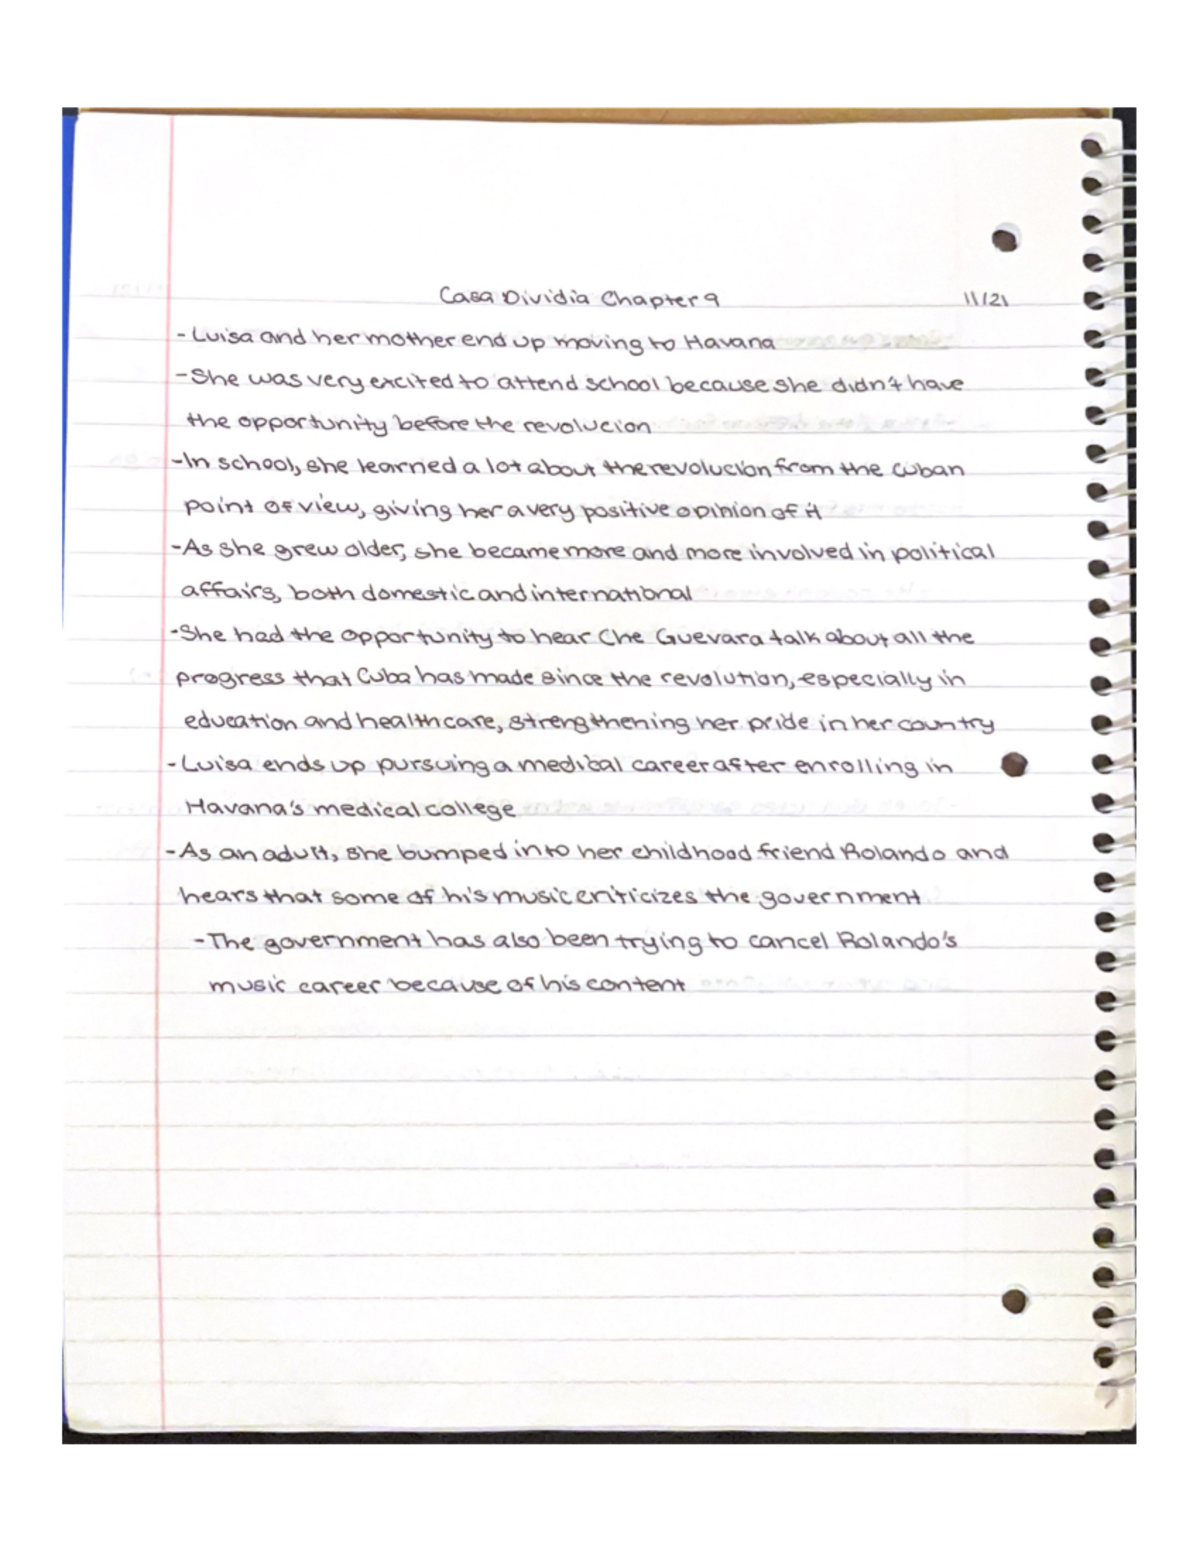 Casa Dividia Chapter 9 11/21
- Luisa and her mother end up moving to Havana
- She was very excited to attend school because she didn't have
the opportunity before the revolucion
- In school, she learned a lot about the revolucion from the Cuban
point of view, giving her a very positive opinion of it
- As she grew older, she became more and more involved in political
affairs, both domestic and international
- She had the opportunity to hear Che Guevara talk about all the
progress that Cuba has made since the revolution, especially in
education and healthcare, strengthening her pride in her country
- Luisa ends up pursuing a medical career after enrolling in
Havana's medical college
- As an adult, she bumped into her childhood friend Rolando and
hears that some of his music criticizes the government
- The government has also been trying to cancel Rolando's
music career because of his content